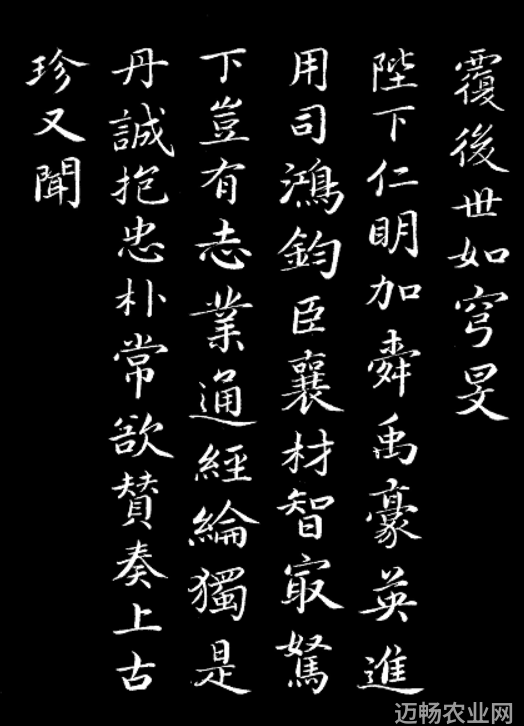 覆後世如穹旻
陛下仁明加舜禹豪英進
用司鴻鈞臣襄材智寂駑
下豈有志業通經綸獨是
丹誠抱忠朴常欲賛奏上古
珍又聞
迈畅农业网